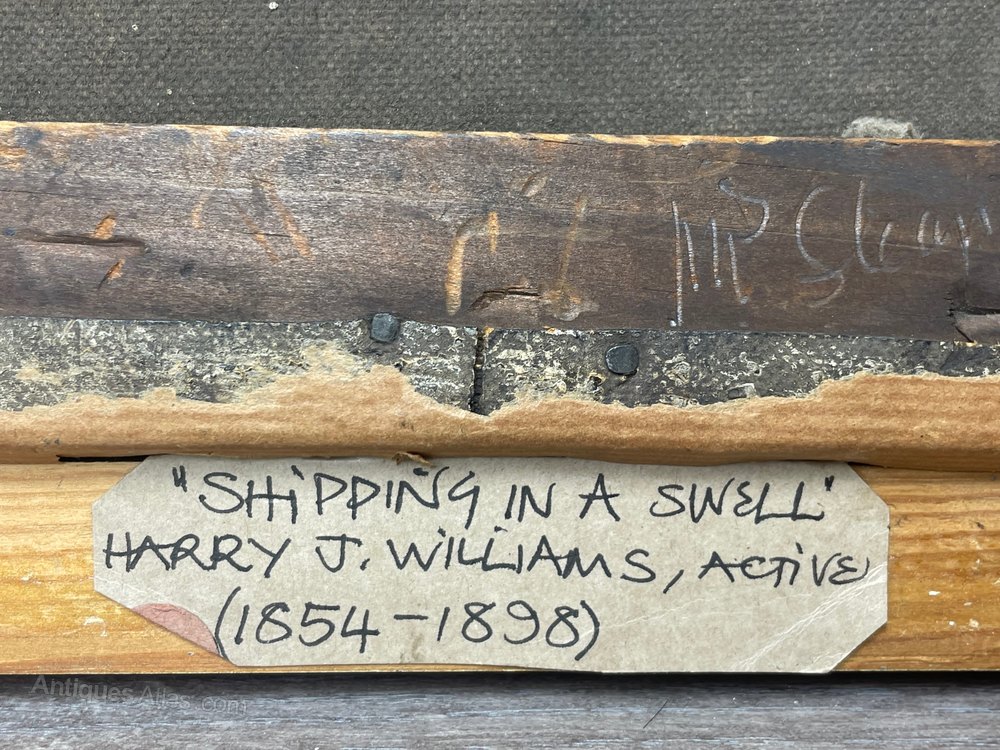 "SHiPPiNG IN A SWELL"
HARRY J. WiLLiAMS, ACTiVE
(1854-1898)
AntiquesAtlas.com